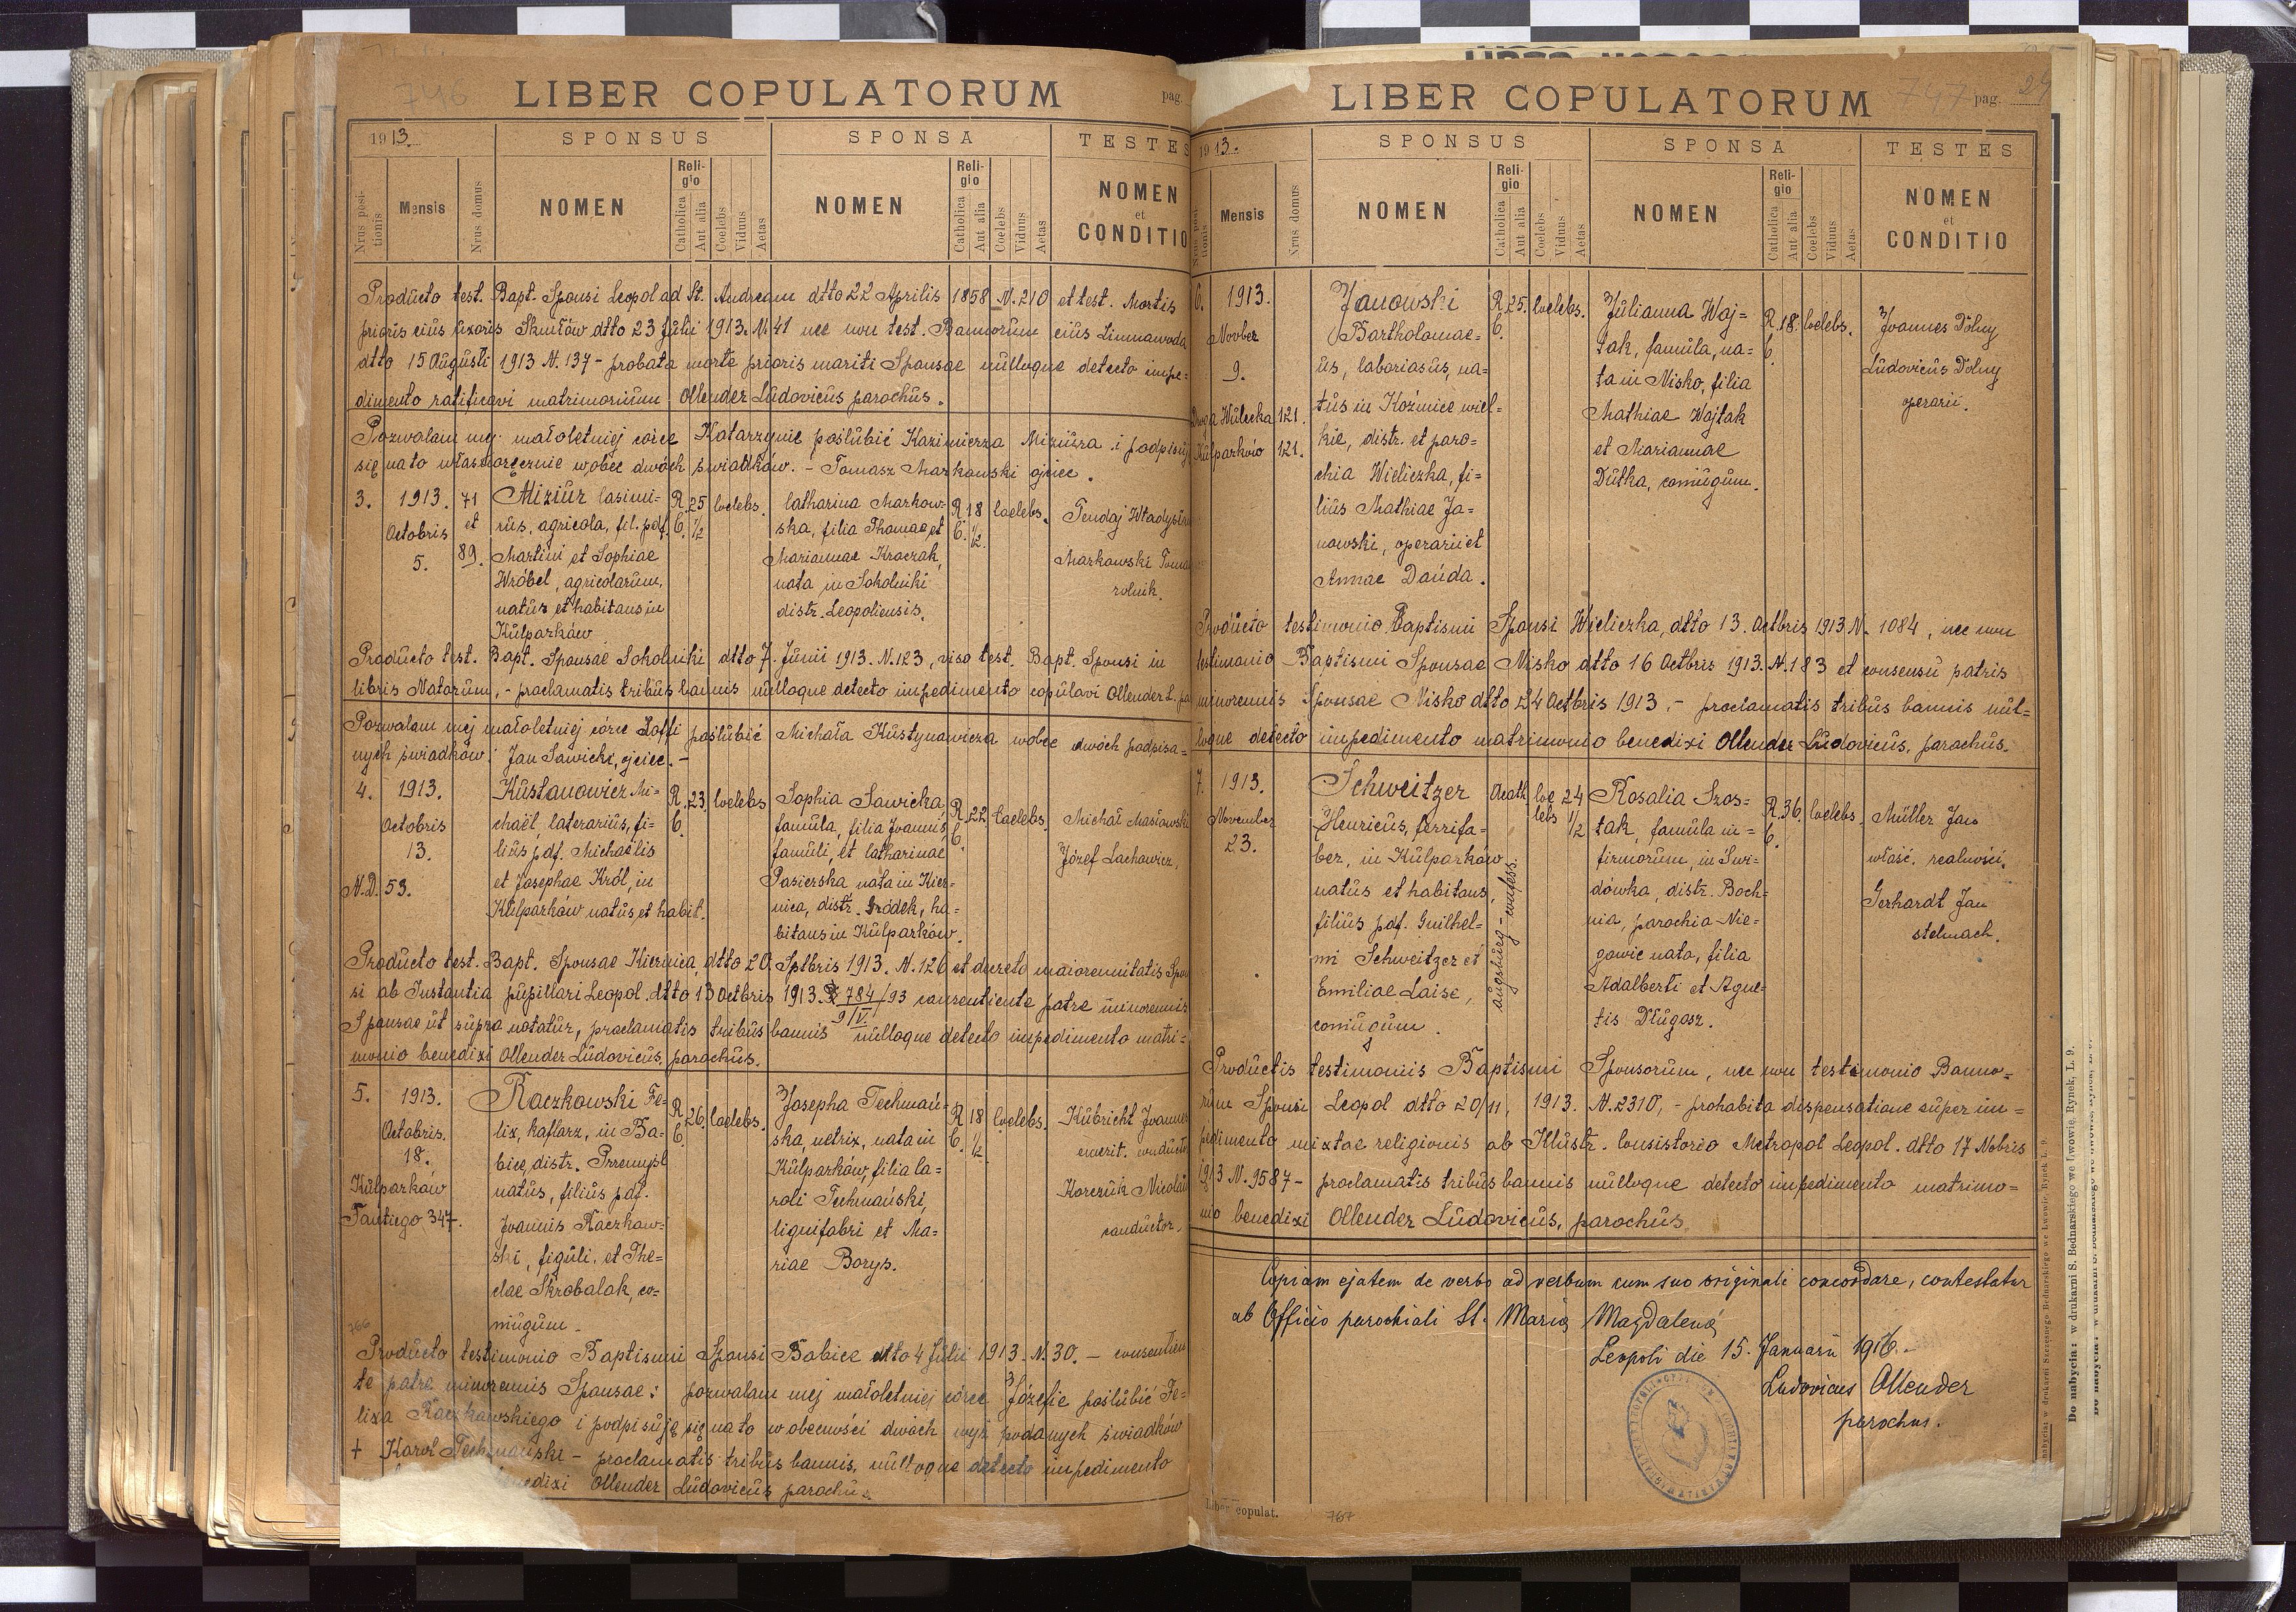 746
LIBER COPULATORUM
pag.
1913.
SPONSUS
SPONSA
TESTES
Nrus positionis
Mensis
Nrus domus
NOMEN
Religio
Catholica
Aut alia
Coelebs
Viduus
Aetas
NOMEN
Religio
Catholica
Aut alia
Coelebs
Viduus
Aetas
NOMEN
et
CONDITIO
Producto test. Bapt. Sponsi Leopol ad St. Andream dtto 22 Aprilis 1858 N. 210 et test. Mortis
prioris eius uxoris Skniłów dtto 23 Julii 1913. N. 41 nec non test. Bannorum eius Linnawoda
dtto 15 Augusti 1913 N. 137 - probata morte prioris mariti Sponsae nulloque detecto impe=
dimento ratificavi matrimonium Ollender Ludovicus parochus.
Pozwalam mej małoletniej córce Katarzynie poślubić Kazimierza Miziura i podpisuję
się na to własnoręcznie wobec dwóch świadków. - Tomasz Markowski ojciec.
3.
1913.
Octobris
5.
71
et
89.
Miziur Casimi-
rus, agricola, fil. pdf.
Martini et Sophiae
Wróbel, agricolarum,
natus et habitans in
Kulparków
R.
C.
25
1/2
Coelebs.
Catharina Markow-
ska, filia Thomae et
Mariannae Kraczak,
nata in Sokolniki
distr. Leopoliensis.
R.
C.
18
1/2.
Coelebs.
Tendaj Władysław
Markowski Tomasz
rolnik.
Producto test. Bapt. Sponsae Sokolniki dtto 7. Junii 1913. N. 123, viso test. Bapt. Sponsi in
libris Natorum, - proclamatis tribus bannis nulloque detecto impedimento copulavi Ollender L. pa
Pozwalam mej małoletniej córce Zofii poślubić Michała Kustynowicza wobec dwóch podpisa=
nych świadków: Jan Sawicki, ojciec. -
4.
1913.
Octobris
13.
N.D. 53.
Kustanowicz Mi-
chaël, laterarius, fi-
lius pdf. Michaëlis
et Josephae Król, in
Kulparków natus, et habit.
R.
C.
23.
Coelebs
Sophia Sawicka
famula, filia Joannis
famuli, et Catharinae
Pazierska nata in Kier=
nica, distr. Gródek, ha=
bitans in Kulparków.
R.
C.
22.
Coelebs.
Michał Masłowski
Józef Lachowicz.
Producto test. Bapt. Sponsae Kiernica, dtto 20. Sptbris 1913. N. 126 et decreto maiorennitatis Spon
si ab Instantia pupillari Leopol. dtto 13 Octbris 1913. P 784/93 consentiente patre minorennis
9/IV.
Sponsae ut supra notatur, proclamatis tribus bannis nulloque detecto impedimento matri=
monio benedixi Ollender Ludovicus, parochus.
5.
1913.
Octobris.
18.
Kulparków
347.
Raczkowski Fe=
lix, kaflarz, in Ba=
bice, distr. Przemyśl
natus, filius pdf.
Joannis Raczkow=
ski, figuli, et The=
clae Skrobalak, co=
niugum.
R
C.
26.
Coelebs.
Josepha Techmań=
ska, netrix, nata in
Kulparków, filia Ca=
roli Techmański,
lignifabri et Ma=
riae Borys.
R
C.
18
1/2.
Coelebs.
Kubricht Joannes
emerit. conductor
Korczuk Nicolaus
conductor.
766
Producto testimonio Baptismi Sponsi Babice dtto 4 Julii 1913. N. 30. - consentien
te patre minorennis Sponsae: pozwalam mej małoletniej córce Józefie poślubić Fe=
lixa Raczkowskiego i podpisuję się na to w obecności dwóch wyż podanych świadków
+ Karol Techmański - proclamatis tribus bannis, nulloque detecto impedimento
benedixi Ollender Ludovicus parochus.
747
LIBER COPULATORUM
pag. 24
1913.
SPONSUS
SPONSA
TESTES
Mensis
Nrus domus
NOMEN
Religio
Catholica
Aut alia
Coelebs
Viduus
Aetas
NOMEN
Religio
Catholica
Aut alia
Coelebs
Viduus
Aetas
NOMEN
et
CONDITIO
6.
1913.
Novber
9.
Droga Wulecka 121.
Kulparków 121.
Janowski
Bartholomae=
us, laboriosus, na=
tus in Koźmice wiel=
kie, distr. et paro=
chia Wieliczka, fi=
lius Mathiae Ja=
nowski, operarii et
Annae Dańda.
R.
C.
25.
Coelebs.
Julianna Woj=
tak, famula, na=
ta in Nisko, filia
Mathiae Wojtak
et Mariannae
Dutka, coniugum.
R.
C.
18.
Coelebs.
Joannes Dolny
Ludovicus Dolny
operarii.
Producto testimonio Baptismi Sponsi Wieliczka, dtto 13. Octbris 1913 N. 1084, nec non
testimonio Baptismi Sponsae Nisko dtto 16 Octbris 1913. N. 183 et consensu patris
minorennis Sponsae Nisko dtto 24 Octbris 1913. - proclamatis tribus bannis nul=
loque detecto impedimento matrimonio benedixi Ollender Ludovicus, parochus.
7.
1913.
November
23.
Schweitzer
Henricus, ferrifa=
ber, in Kulparków
natus et habitans,
filius pdf. Guilhel=
mi Schweitzer et
Emiliae Laise,
coniugum.
Acath.
augsburg - confess.
Coe
lebs
24
1/2
Rosalia Szos=
tak, famula in=
firmorum, in Świ=
dówka, distr. Boch=
nia, parochia Nie=
gowic nata, filia
Adalberti et Agne=
tis Długosz.
R.
C.
36.
Coelebs.
Müller Jan
właść. realności.
Gerhardt Jan
stelmach.
Productis testimoniis Baptismi Sponsorum, nec non testimonio Banno=
rum Sponsi Leopol dtto 20/11. 1913. N. 2310, - prohabita dispensatione super im=
pedimento mixtae religionis ab Illustr. Consistorio Metropol Leopol. dtto 17 Nobris
1913 N. 9587 - proclamatis tribus bannis nulloque detecto impedimento matrimo=
nio benedixi Ollender Ludovicus, parochus.
Copiam ejatem de verbo ad verbum cum suo originali concordare, contestatur
ab Officio parochiali St. Mariä Magdalenä
Leopoli die 15. Januarii 1916.
Ludovicus Ollender
parochus.
Liber copulat.
767
Do nabycia: w drukarni S. Bednarskiego we Lwowie, Rynek, L. 9.